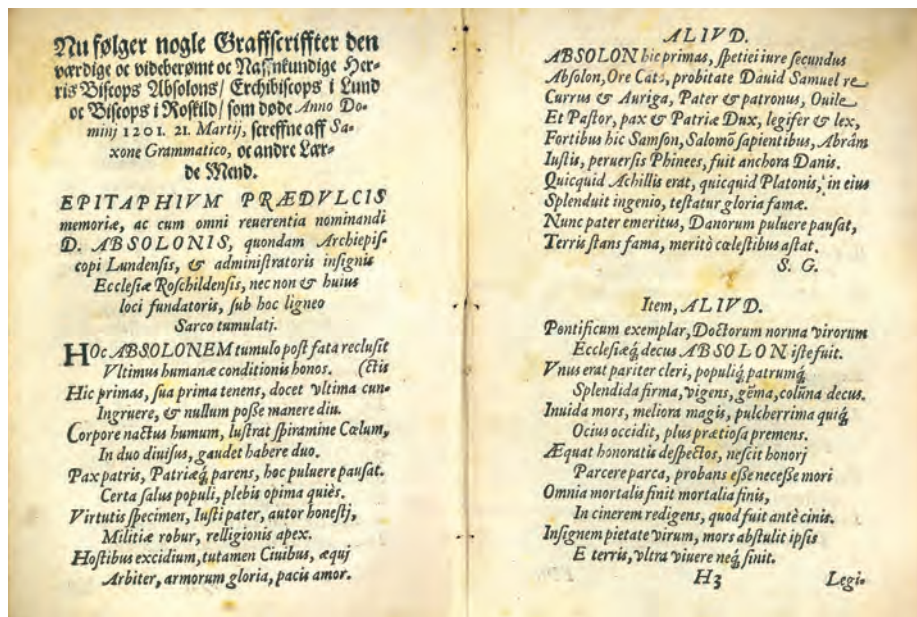 Nu følger nogle Graffscriffter den
værdige oc videberømt oc Naffnkundige Her-
ris Biscops Absolons/ Erchibiscops i Lund
oc Biscops i Roskild/ som døde Anno Do-
minj 1201. 21. Martij, screffne aff Sa-
xone Grammatico, oc andre Lær-
de Mend.
EPITAPHIVM PRÆDVLCIS
memoriæ, ac cum omni reuerentia nominandi
D. ABSOLONIS, quondam Archiepiſ-
copi Lundenſis, & adminiſtratoris inſignis
Eccleſiæ Roſchildenſis, nec non & huius
loci fundatoris, ſub hoc ligneo
Sarco tumulatj.
HOc ABSOLONEM tumulo poſt fata recluſit
Vltimus humanæ conditionis honos. (ctis
Hic primas, ſua prima tenens, docet vltima cun-
Ingruere, & nullum poſſe manere diu.
Corpore nactus humum, luſtrat ſpiramine Cœlum,
In duo diuiſus, gaudet habere duo.
Pax patris, Patriæq́ parens, hoc puluere pauſat.
Certa ſalus populi, plebis opima quiès.
Virtutis ſpecimen, Iuſti pater, autor honeſtj,
Militiæ robur, relligionis apex.
Hoſtibus excidium, tutamen Ciuibus, æquj
Arbiter, armorum gloria, pacis amor.
ALIVD.
ABSOLON hic primas, ſpetiei iure ſecundus
Abſolon, Ore Cato, probitate Dauid Samuel re
Currus & Auriga, Pater & patronus, Ouile
Et Paſtor, pax & Patriæ Dux, legifer & lex,
Fortibus hic Samſon, Salomõ ſapientibus, Abrâm
Iuſtis, peruerſis Phinees, fuit anchora Danis.
Quicquid Achillis erat, quicquid Platonis, in eius
Splenduit ingenio, teſtatur gloria famæ.
Nunc pater emeritus, Danorum puluere pauſat,
Terris ſtans fama, meritò cœleſtibus aſtat.
S. G.
Item, ALIVD.
Pontificum exemplar, Doctorum norma virorum
Eccleſiæq́ decus ABSOLON iſte fuit.
Vnus erat pariter cleri, populiq́ patrumq́
Splendida firma, vigens, gẽma, colũna decus.
Inuida mors, meliora magis, pulcherrima quiq́
Ocius occidit, plus prætioſa premens.
Æquat honoratis deſpectos, neſcit honorj
Parcere parca, probans eſſe neceſſe mori
Omnia mortalis finit mortalia finis,
In cinerem redigens, quod fuit antè cinis.
Inſignem pietate virum, mors abſtulit ipſis
E terris, vltra viuere neq́ ſinit.
H3 Legi-